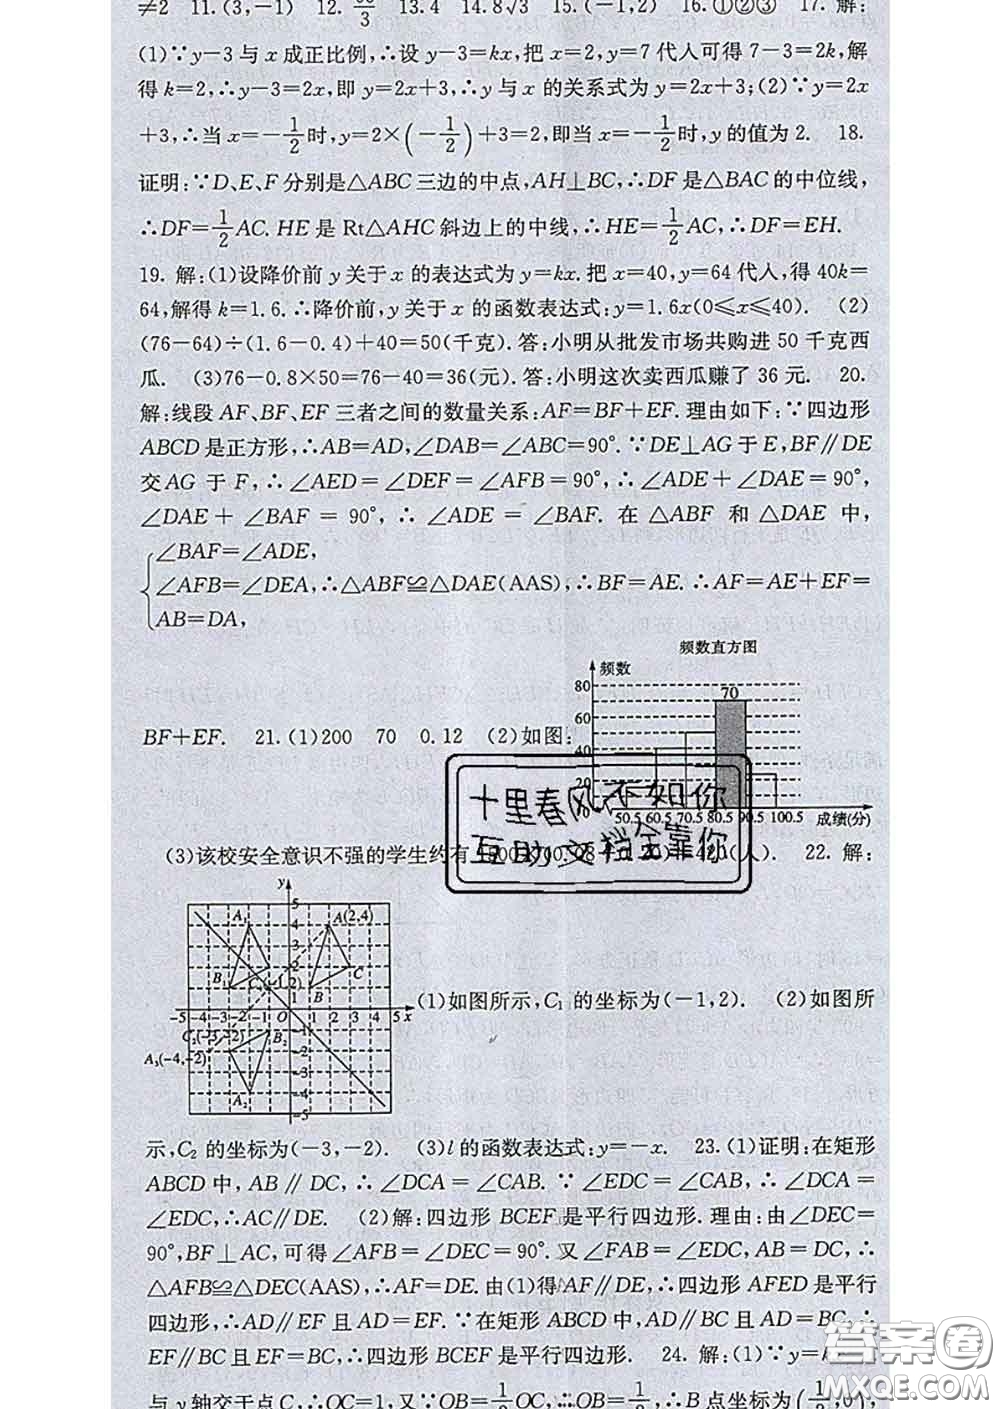 ≠2 11.(3,-1) 12. 3 13.4 14.8√3 15.(-1,2) 16.①②③ 17. 解:
(1)∵y-3与x成正比例,∴设y-3=kx,把x=2,y=7代入可得7-3=2k,解
得k=2,∴y-3=2x,即y=2x+3,∴y与x的关系式为y=2x+3;(2)∵y=2x
+3,∴当x=-1/2时,y=2×(-1/2)+3=2,即当x=-1/2时,y的值为2. 18.
证明:∵D、E、F分别是△ABC三边的中点,AH⊥BC,∴DF是△BAC的中位线,
∴DF=1/2AC. HE是Rt△AHC斜边上的中线,∴HE=1/2AC,∴DF=EH.
19. 解:(1)设降价前y关于x的表达式为y=kx.把x=40,y=64代入,得40k=
64,解得k=1.6.∴降价前,y关于x的函数表达式:y=1.6x(0≤x≤40). (2)
(76-64)÷(1.6-0.4)+40=50(千克).答:小明从批发市场共购进50千克西
瓜. (3)76-0.8×50=76-40=36(元).答:小明这次卖西瓜赚了36元. 20.
解:线段AF、BF、EF三者之间的数量关系:AF=BF+EF.理由如下:∵四边形
ABCD是正方形,∴AB=AD,∠DAB=∠ABC=90°.∵DE⊥AG于E,BF∥DE
交AG于F,∴∠AED=∠DEF=∠AFB=90°,∴∠ADE+∠DAE=90°,
∠DAE+∠BAF=90°,∴∠ADE=∠BAF.在△ABF和△DAE中,
∠BAF=∠ADE,
∠AFB=∠DEA,∴△ABF≌△DAE(AAS),∴BF=AE.∴AF=AE+EF=
AB=DA,
频数直方图
频数
80
70
60
40
20
0
50.5 60.5 70.5 80.5 90.5 100.5 成绩(分)
BF+EF. 21.(1)200 70 0.12 (2)如图:
十里春风不如你
互助文档全靠你
(3)该校安全意识不强的学生约有 420(人). 22. 解:
y
5
A₁ 4 A(2,4)
3
B₁ 2 C
C₁(-1,2) 1 B
-5-4-3-2-1 O 1 2 3 4 5 x
C₂(-3,-2) -1 B₂
A₃(-4,-2) -2
-3
A₂ -4
-5
(1)如图所示,C₁的坐标为(-1,2). (2)如图所
示,C₂的坐标为(-3,-2). (3)l的函数表达式:y=-x. 23.(1)证明:在矩形
ABCD中,AB∥DC,∴∠DCA=∠CAB.∵∠EDC=∠CAB,∴∠DCA=
∠EDC,∴AC∥DE. (2)解:四边形BCEF是平行四边形.理由:由∠DEC=
90°,BF⊥AC,可得∠AFB=∠DEC=90°.又∠FAB=∠EDC,AB=DC,∴
△AFB≌△DEC(AAS),∴AF=DE.由(1)得AF∥DE,∴四边形AFED是平行
四边形,∴AD∥EF且AD=EF.∵在矩形ABCD中,AD∥BC且AD=BC,∴
EF∥BC且EF=BC,∴四边形BCEF是平行四边形. 24. 解:(1)∵y=k
与y轴交于点C,∴OC=1,又∵OB=1/2OC,∴OB=1/2,∴B点坐标为(1/2,0),
答案圈
MXQE.COM